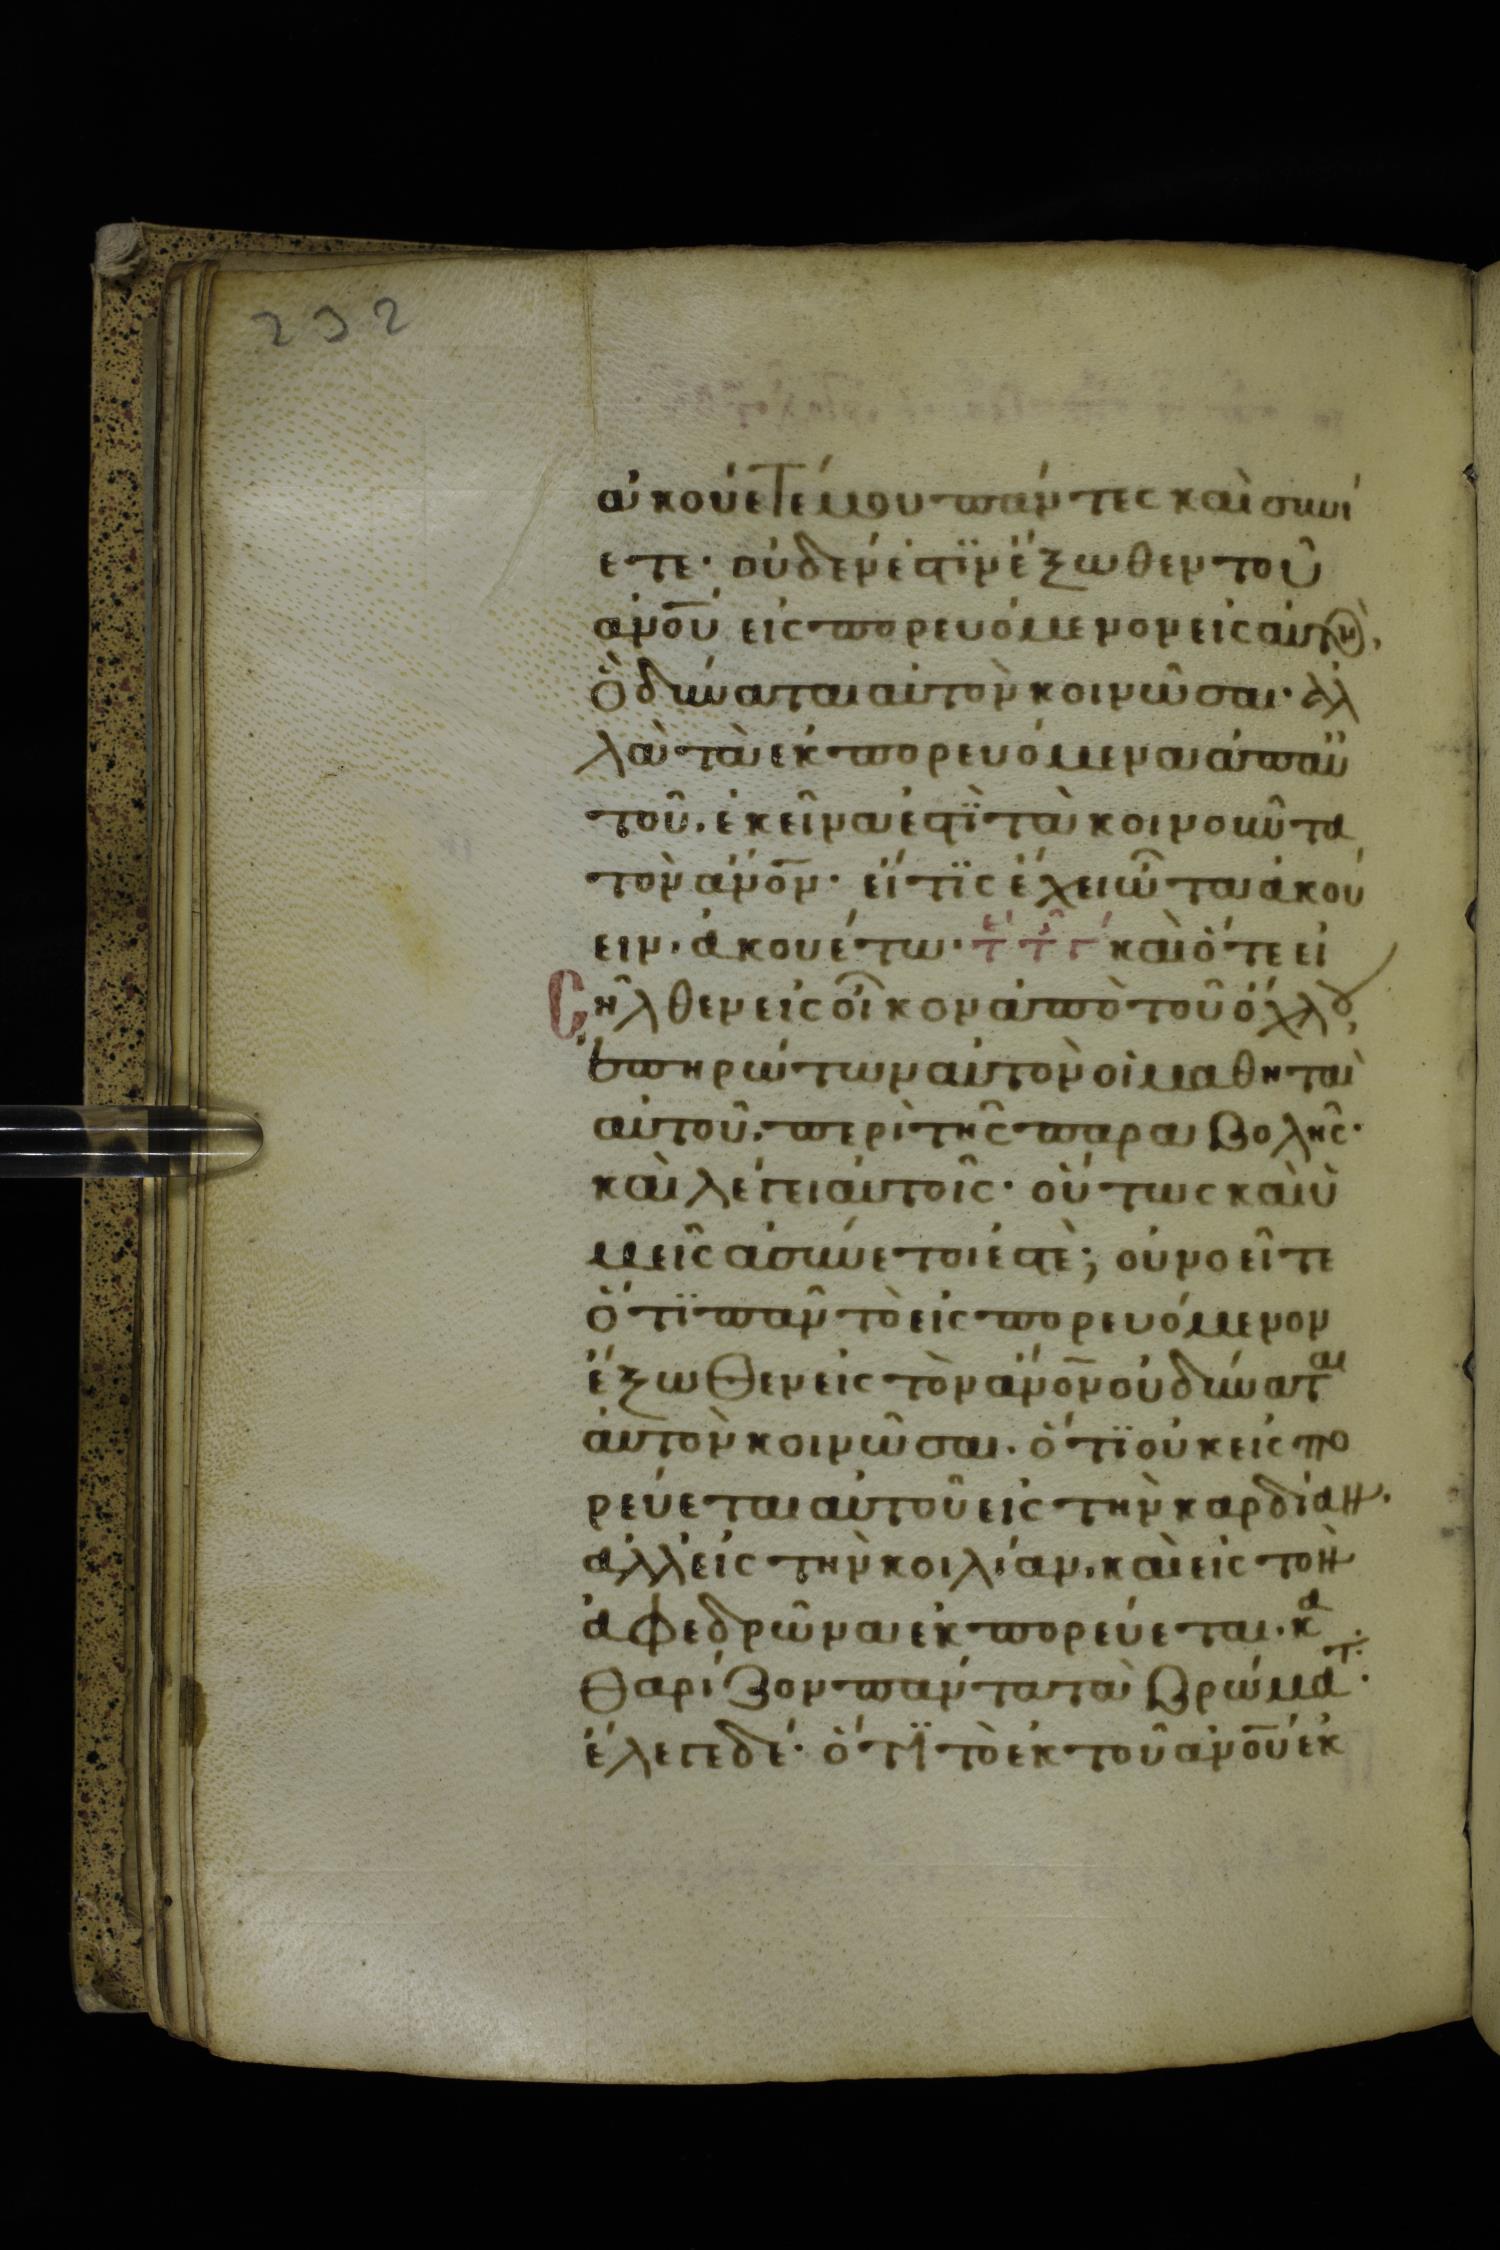 232
ἀκούετέ μου πάντες καὶ συνί
ετε· οὐδέν ἐστϊν ἔξωθεν τοῦ
ἀνου εἰσπορευόμενον εἰς αὐτὸν,
ὃ δύναται αὐτὸν κοινῶσαι· ἀλ
λὰ τὰ ἐκπορευόμενα ἀπ αὐ
τοῦ. ἐκεῖνα ἐστϊ τὰ κοινοῦντα
τὸν ἄνον· εἴ τϊς ἔχει ὦτα ἀκού
ειν. ἀκουέτω· καὶ ὅτε εἰ
σῆλθεν εἰς οἶκον ἀπὸ τοῦ ὄχλου,
ἐπηρώτων αὐτὸν οἱ μαθηταὶ
αὐτοῦ. περὶ τῆς παραβολῆς·
καὶ λέγει αὐτοῖς· οὕτως καὶ ὑ
μεῖς ἀσύνετοι ἐστὲ; οὐ νοεῖτε
ὅτϊ πᾶν τὸ εἰσπορευόμενον
ἔξωθεν εἰς τὸν ἄνον οὐ δύναται
αὐτὸν κοινῶσαι. ὅτϊ οὐκ εἰσπο
ρεύεται αὐτοῦ εἰς τὴν καρδίαν.
ἀλλ εἰς τὴν κοιλίαν. καὶ εἰς τὸν
ἀφεδρῶνα ἐκπορεύεται. κα
θαρίζον πάντα τὰ βρώματ·
ἔλεγε δέ· ὅτϊ τὸ ἐκ τοῦ ἀνου ἐκ